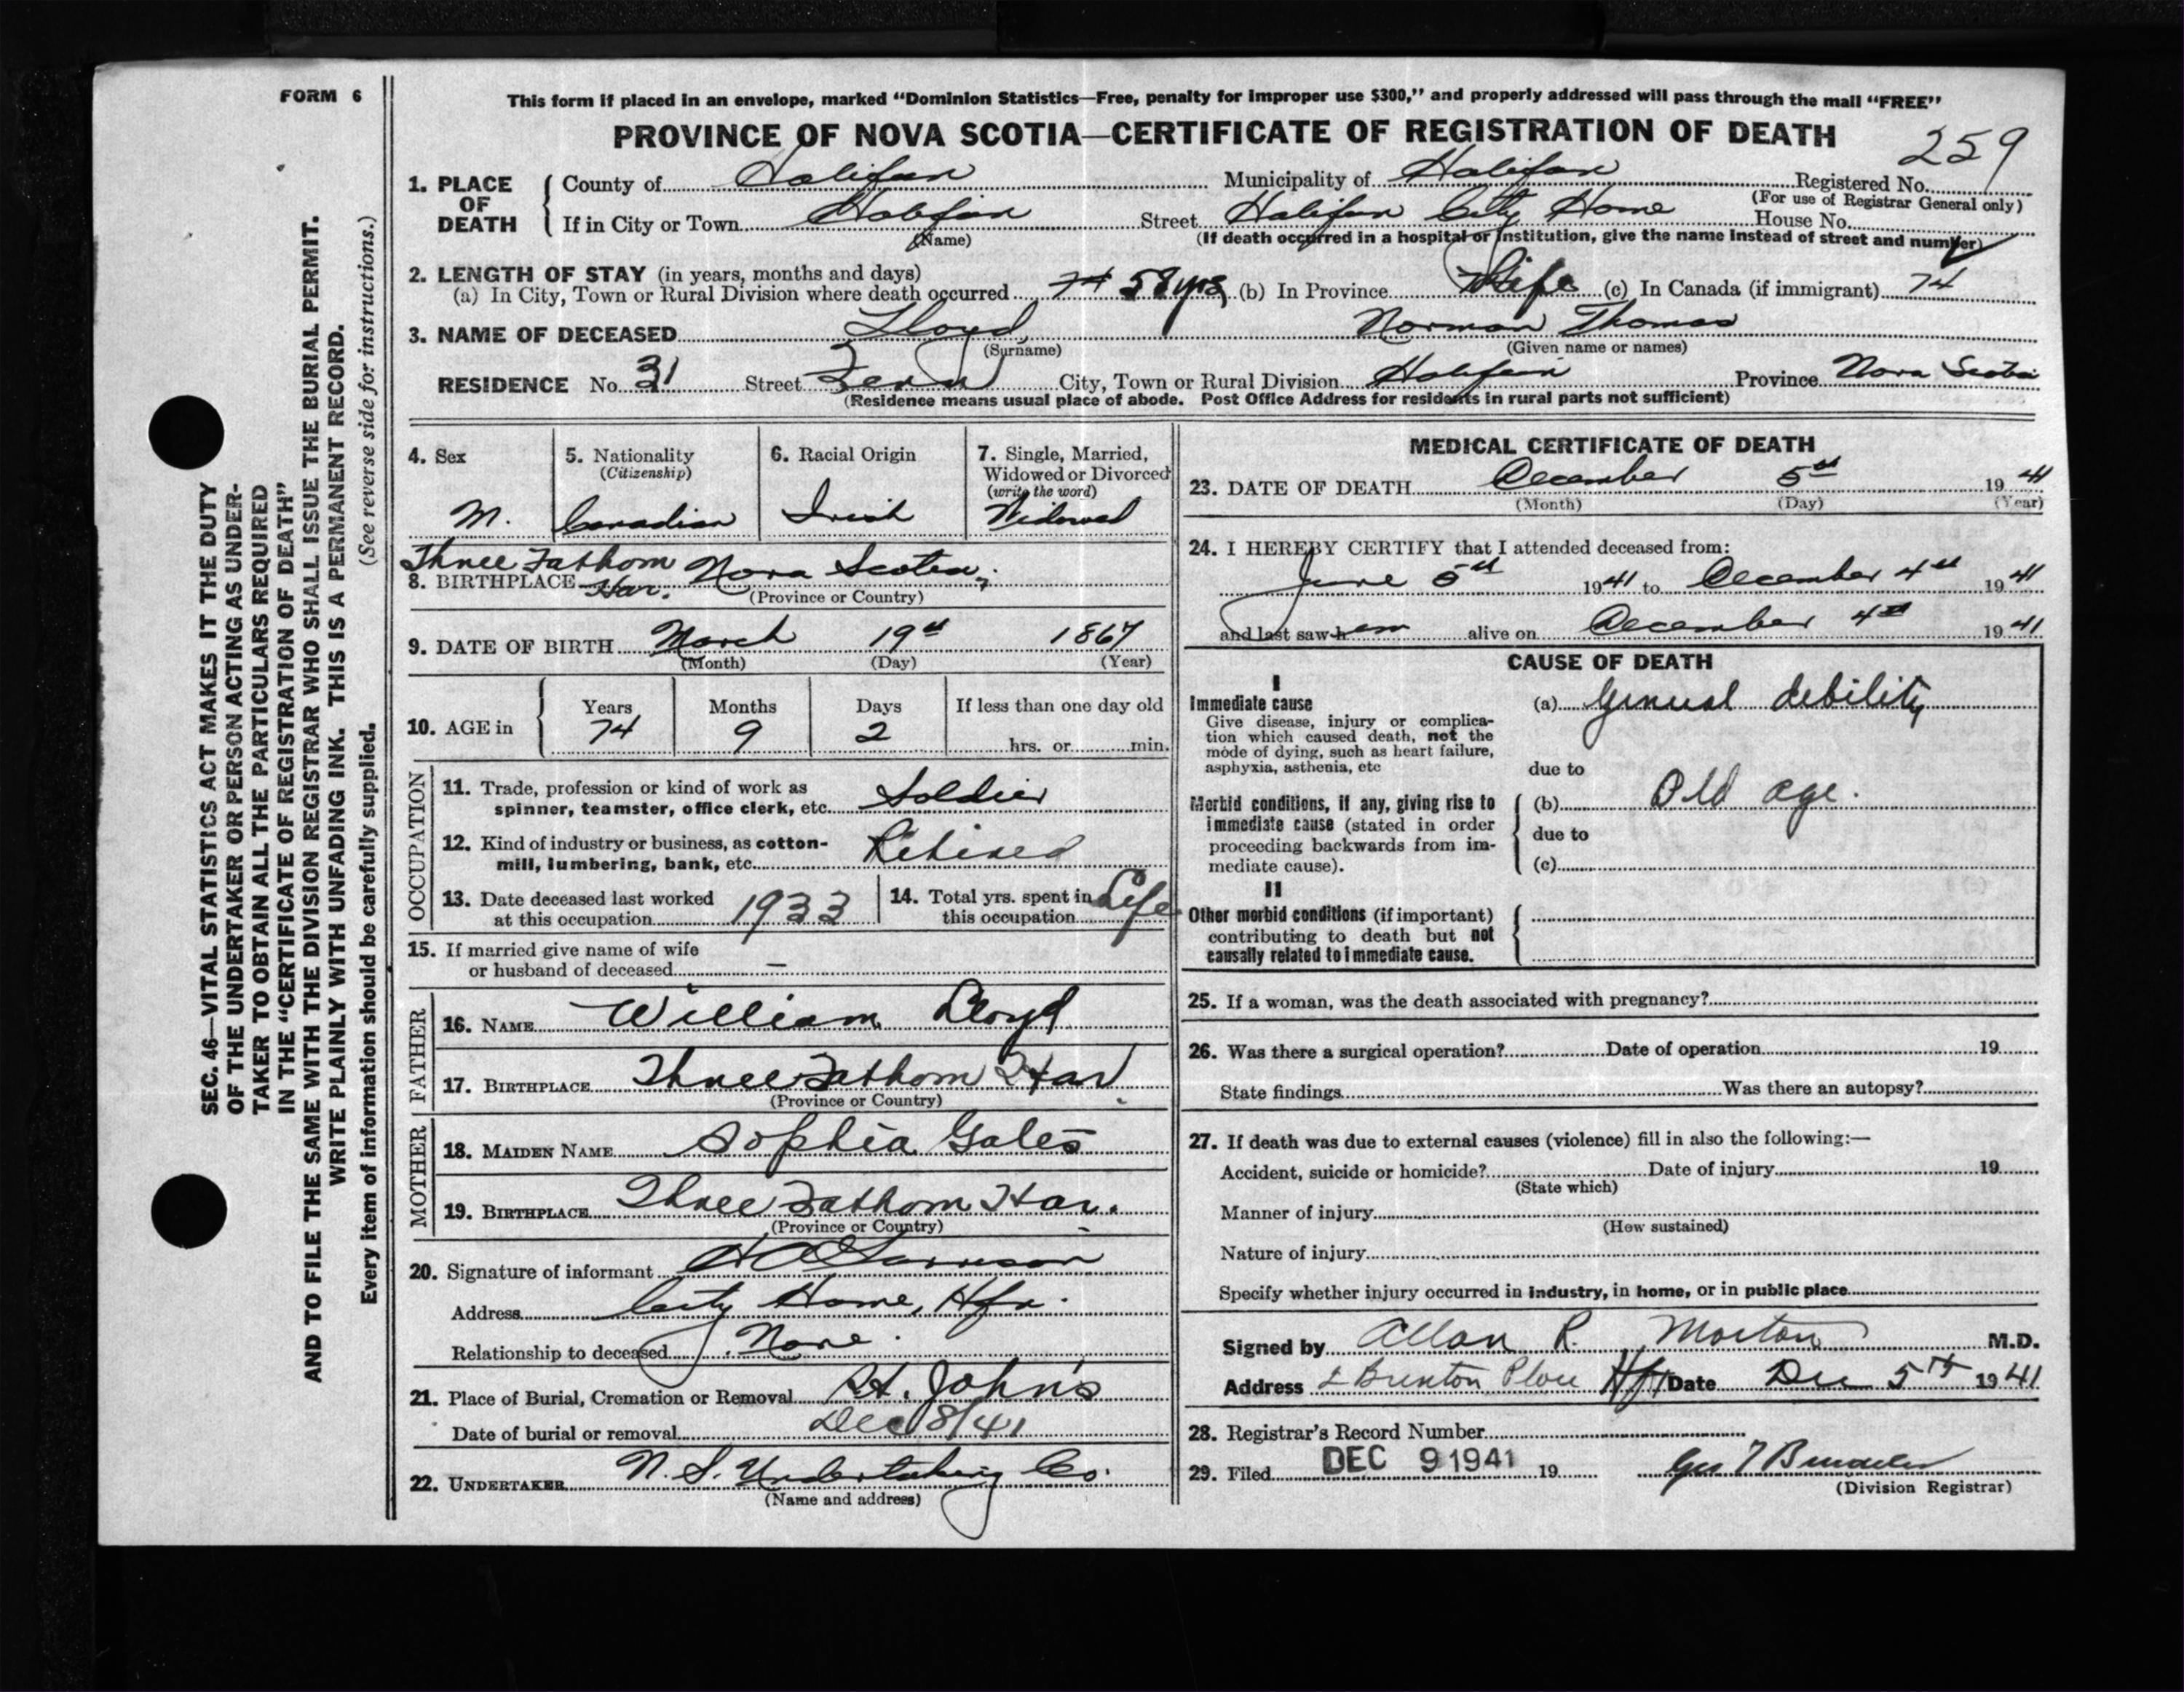 FORM 6
This form if placed in an envelope, marked "Dominion Statistics—Free, penalty for improper use $300," and properly addressed will pass through the mail "FREE"
PROVINCE OF NOVA SCOTIA—CERTIFICATE OF REGISTRATION OF DEATH
259
1. PLACE OF DEATH County of Halifax Municipality of Halifax Registered No.
(For use of Registrar General only)
If in City or Town Halifax Street Halifax City Home House No.
(Name) (If death occurred in a hospital or institution, give the name instead of street and number)
2. LENGTH OF STAY (in years, months and days)
(a) In City, Town or Rural Division where death occurred 74 58 yrs (b) In Province Life (c) In Canada (if immigrant) 74
3. NAME OF DECEASED Lloyd Norman Thomas
(Surname) (Given name or names)
RESIDENCE No. 31 Street City, Town or Rural Division Halifax Province Nova Scotia
(Residence means usual place of abode. Post Office Address for residents in rural parts not sufficient)
4. Sex M.
5. Nationality (Citizenship) Canadian
6. Racial Origin Irish
7. Single, Married, Widowed or Divorced (write the word) Widowed
8. BIRTHPLACE Three Fathom Har. Nova Scotia
(Province or Country)
9. DATE OF BIRTH March 19th 1867
(Month) (Day) (Year)
10. AGE in Years 74 Months 9 Days 2 If less than one day old hrs. or min.
OCCUPATION
11. Trade, profession or kind of work as spinner, teamster, office clerk, etc. Soldier
12. Kind of industry or business, as cotton-mill, lumbering, bank, etc. Retired
13. Date deceased last worked at this occupation 1933
14. Total yrs. spent in this occupation Life
15. If married give name of wife or husband of deceased —
FATHER
16. NAME William Lloyd
17. BIRTHPLACE Three Fathom Har
(Province or Country)
MOTHER
18. MAIDEN NAME Sophia Gales
19. BIRTHPLACE Three Fathom Har.
(Province or Country)
20. Signature of informant
Address City Home, Hfx.
Relationship to deceased None.
21. Place of Burial, Cremation or Removal St. John's
Date of burial or removal Dec 8/41
22. UNDERTAKER N. S. Undertaking Co.
(Name and address)
MEDICAL CERTIFICATE OF DEATH
23. DATE OF DEATH December 5th 1941
(Month) (Day) (Year)
24. I HEREBY CERTIFY that I attended deceased from:
June 5th 1941 to December 4th 1941
and last saw h em alive on December 4th 1941
CAUSE OF DEATH
I
Immediate cause
Give disease, injury or complication which caused death, not the mode of dying, such as heart failure, asphyxia, asthenia, etc
(a) General debility
due to
Morbid conditions, if any, giving rise to immediate cause (stated in order proceeding backwards from immediate cause).
(b) Old age.
due to
(c)
II
Other morbid conditions (if important) contributing to death but not causally related to immediate cause.
25. If a woman, was the death associated with pregnancy?
26. Was there a surgical operation? Date of operation 19
State findings Was there an autopsy?
27. If death was due to external causes (violence) fill in also the following:—
Accident, suicide or homicide? Date of injury 19
(State which)
Manner of injury
(How sustained)
Nature of injury
Specify whether injury occurred in industry, in home, or in public place
Signed by Allan R. Morton M.D.
Address 2 Brunton Place Hfx Date Dec 5th 1941
28. Registrar's Record Number
29. Filed DEC 9 1941 19
(Division Registrar)
SEC. 46—VITAL STATISTICS ACT MAKES IT THE DUTY
OF THE UNDERTAKER OR PERSON ACTING AS UNDER-
TAKER TO OBTAIN ALL THE PARTICULARS REQUIRED
IN THE "CERTIFICATE OF REGISTRATION OF DEATH"
AND TO FILE THE SAME WITH THE DIVISION REGISTRAR WHO SHALL ISSUE THE BURIAL PERMIT.
WRITE PLAINLY WITH UNFADING INK. THIS IS A PERMANENT RECORD.
Every item of information should be carefully supplied. (See reverse side for instructions.)